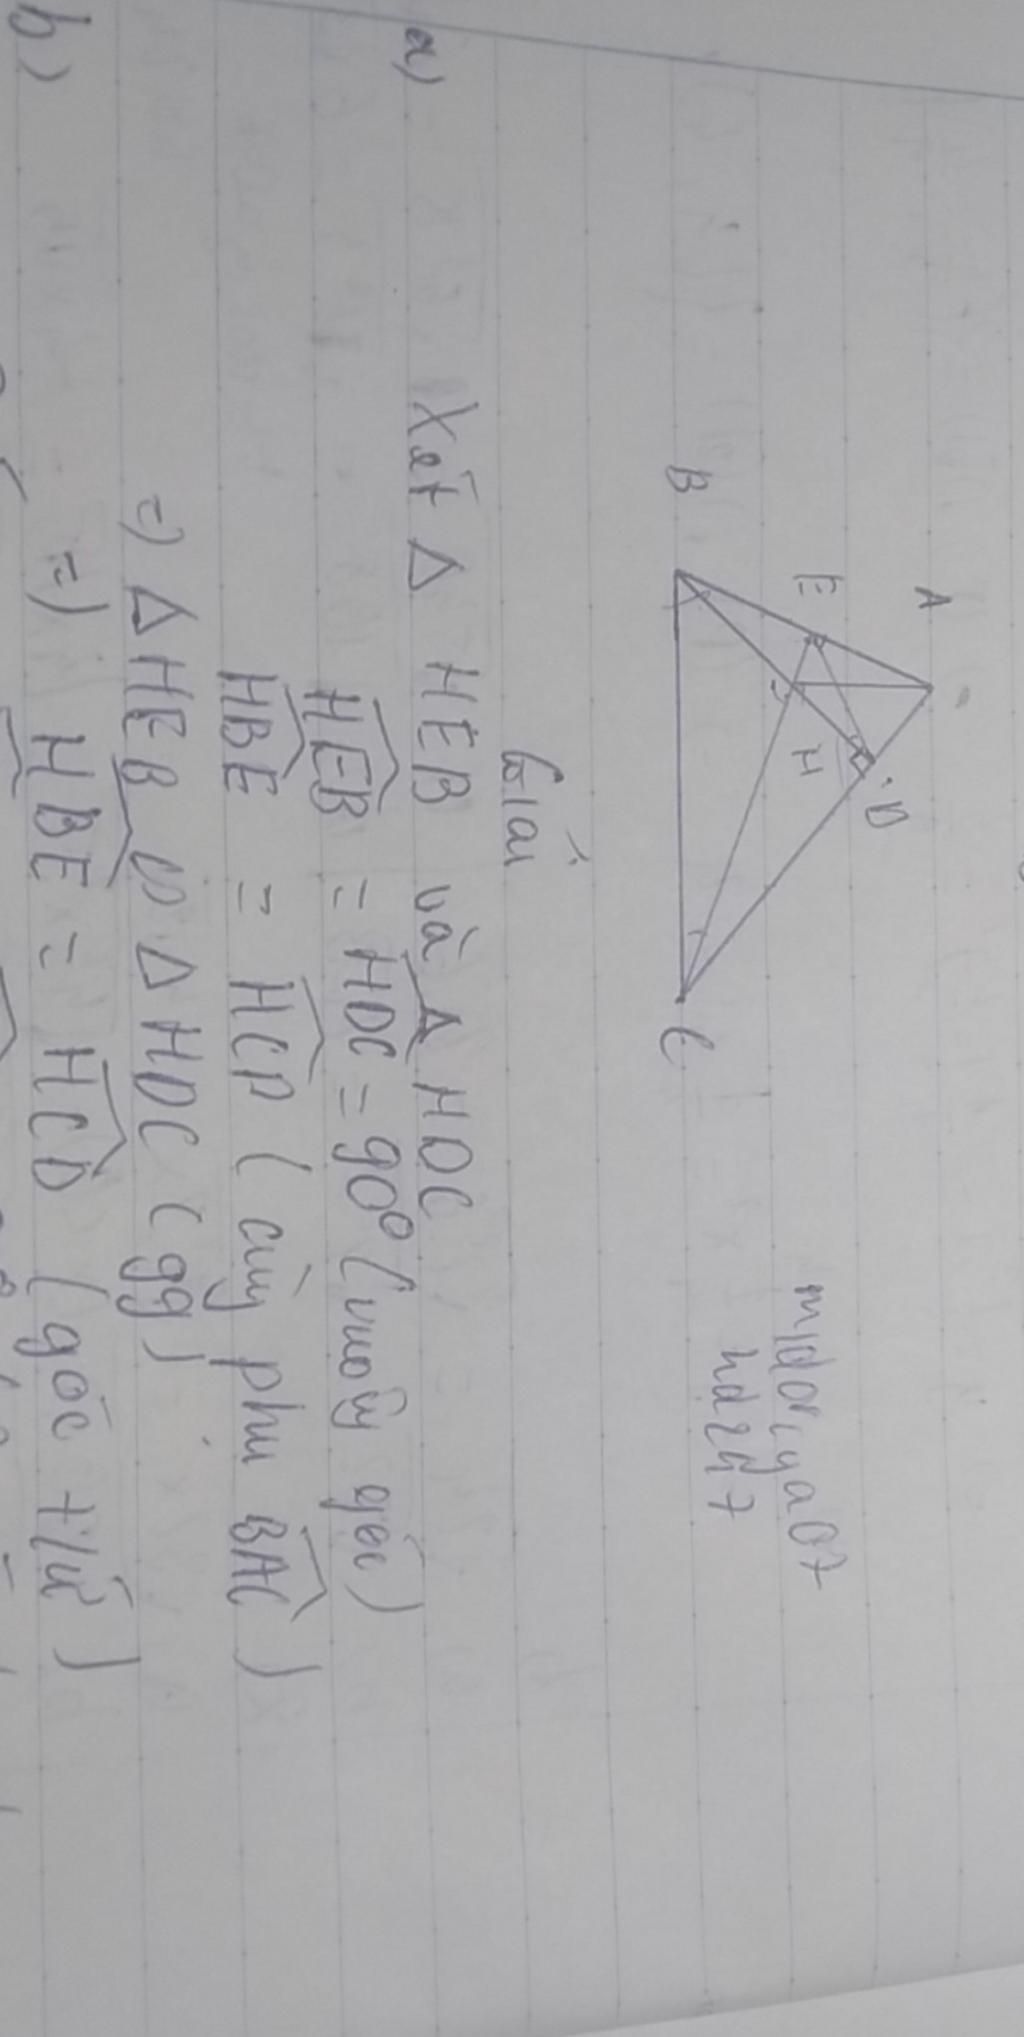 A
E
D
H
B
C
midoriya07
hd247
Giải
a) Xét Δ HEB và Δ HDC
HEB = HDC = 90° (vuông góc)
HBE = HCD (cùng phụ BAC)
=) Δ HEB ∽ Δ HDC (gg)
b) =) HBE = HCD (góc t/ứ)